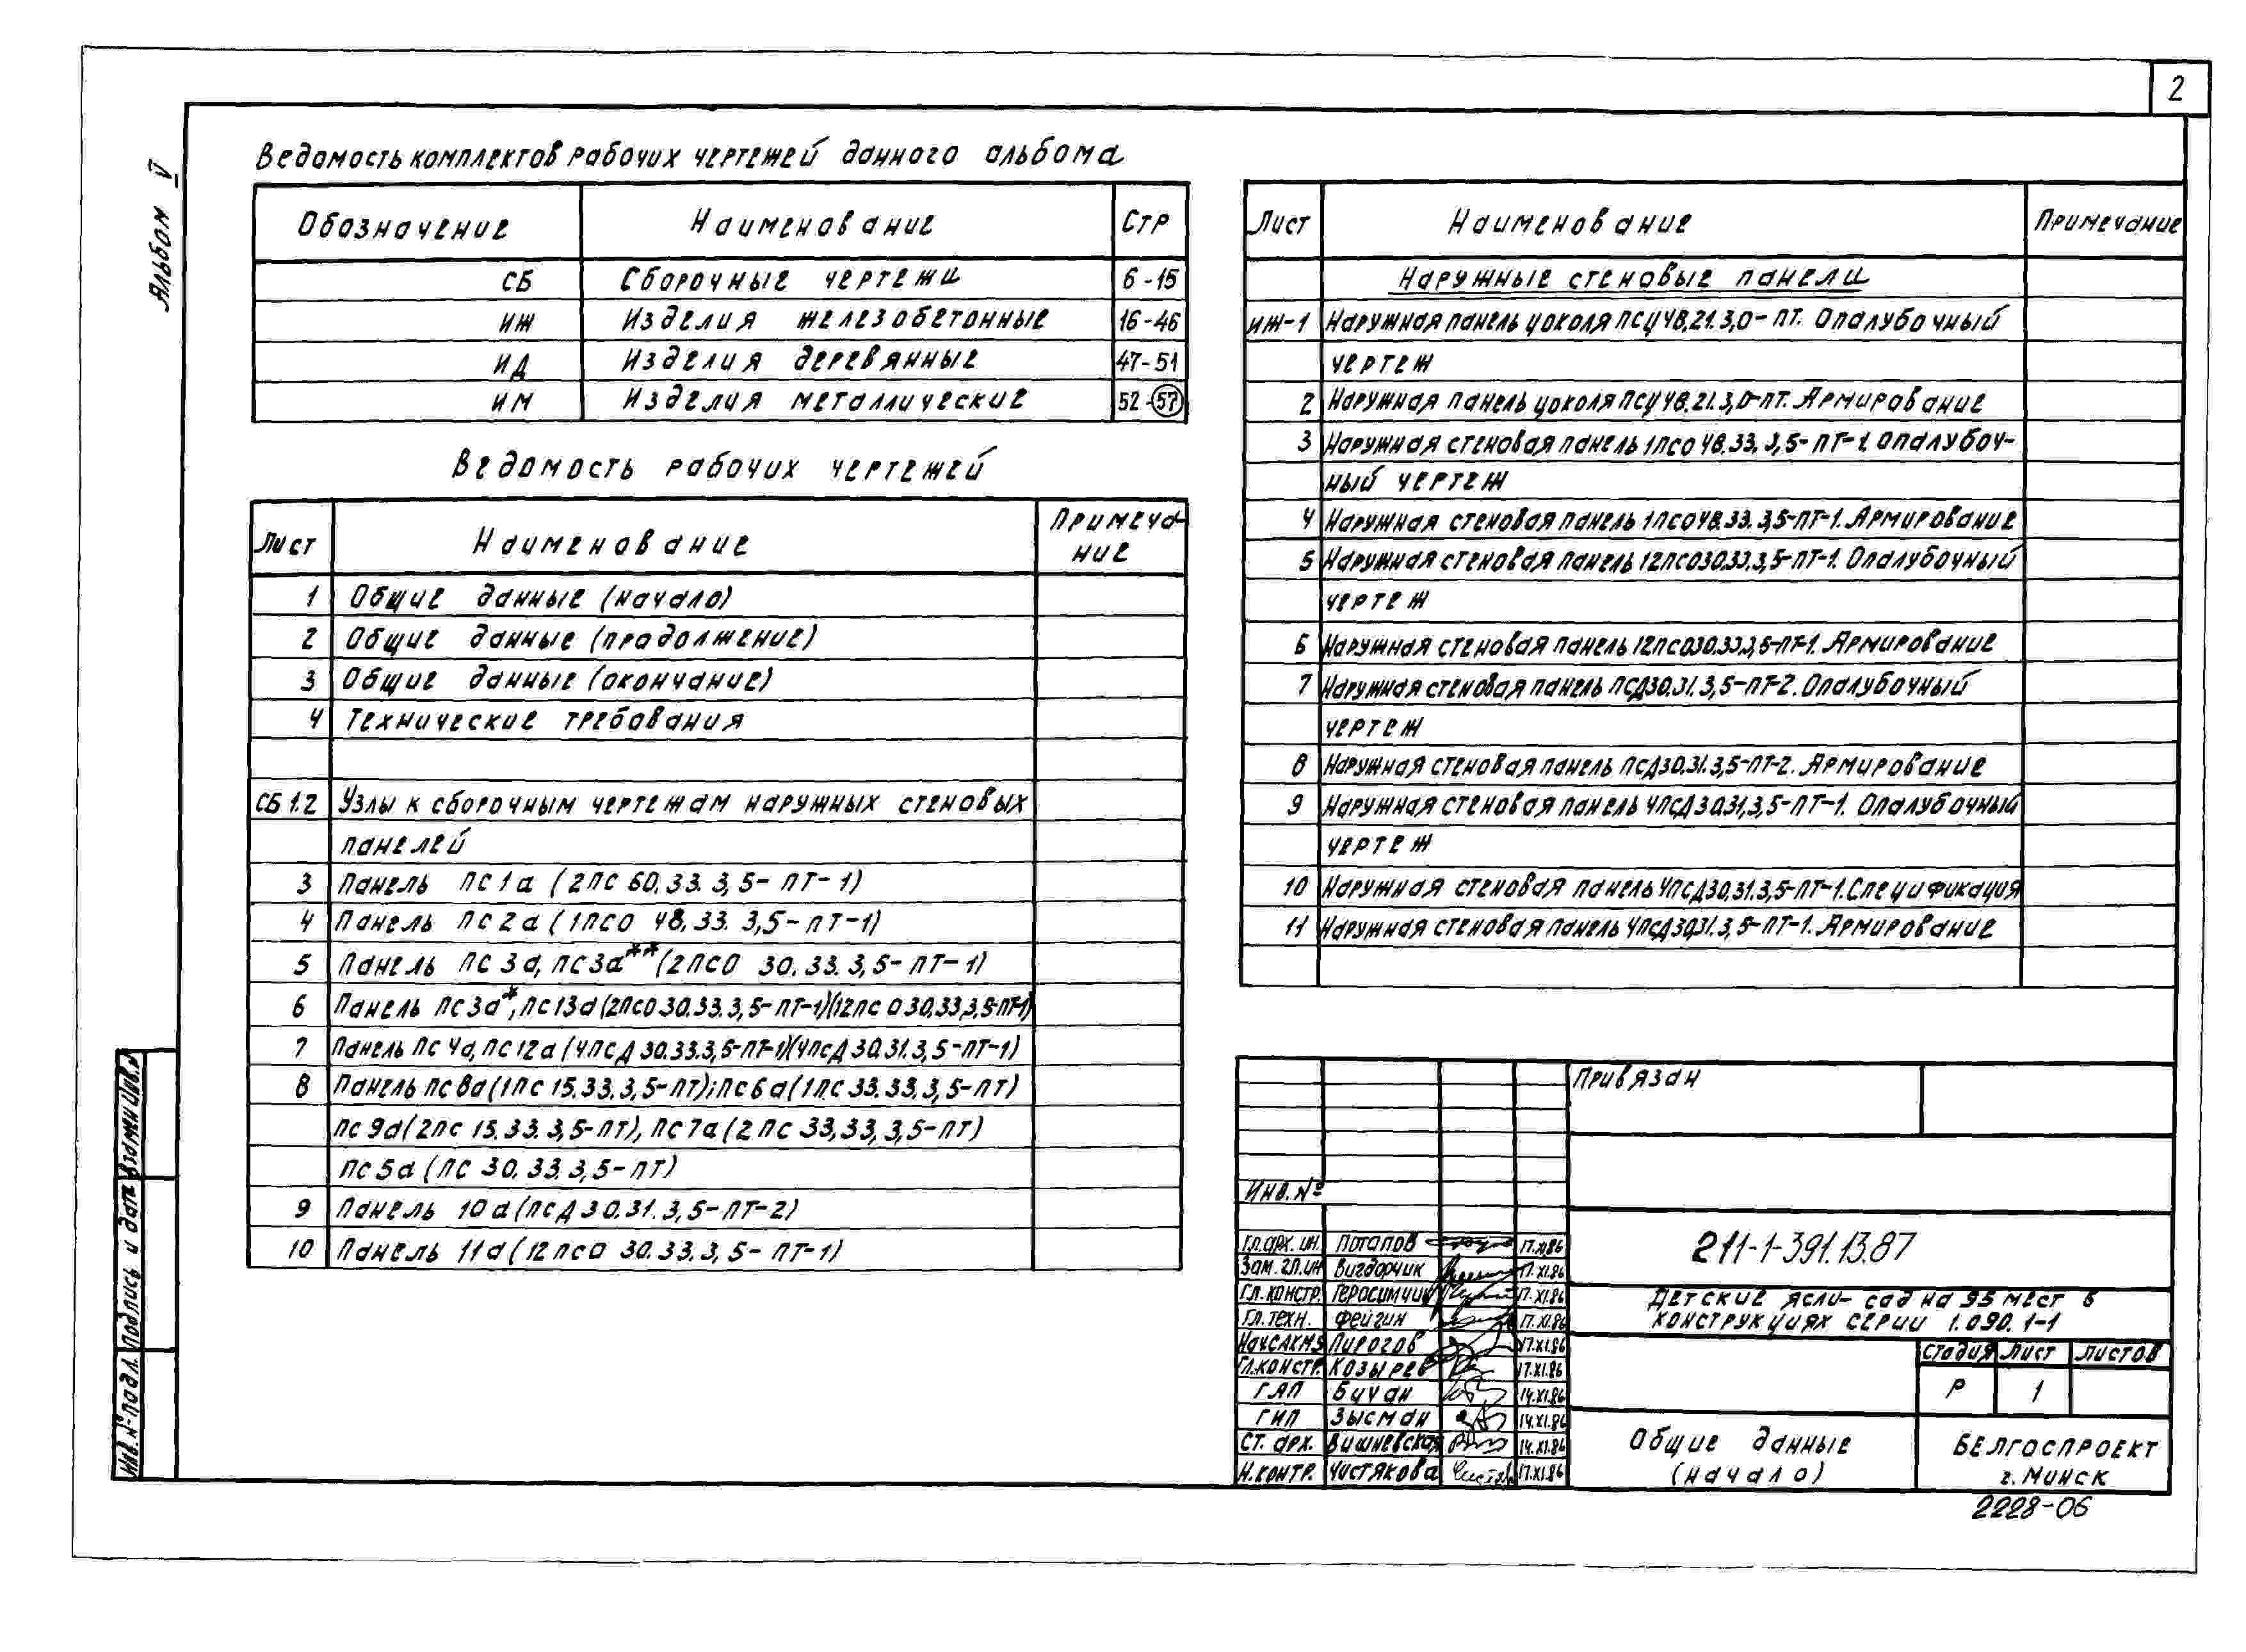 2
Альбом V
Ведомость комплектов рабочих чертежей данного альбома
Обозначение Наименование Стр
СБ Сборочные чертежи 6-15
ИЖ Изделия железобетонные 16-46
ИД Изделия деревянные 47-51
ИМ Изделия металлические 52-57
Ведомость рабочих чертежей
Лист Наименование Примеча-
ние
1 Общие данные (начало)
2 Общие данные (продолжение)
3 Общие данные (окончание)
4 Технические требования
СБ 1.2 Узлы к сборочным чертежам наружных стеновых
панелей
3 Панель ПС 1а (2ПС 60.33.3,5-ПТ-1)
4 Панель ПС 2а (1ПСО 48.33.3,5-ПТ-1)
5 Панель ПС 3а, ПС3а** (2ПСО 30.33.3,5-ПТ-1)
6 Панель ПС3а*, ПС13а (2ПСО 30.33.3,5-ПТ-1)(12ПСО 30.33.3,5-ПТ-1)
7 Панель ПС 4а, ПС12а (4ПСД 30.33.3,5-ПТ-1)(4ПСД 30.31.3,5-ПТ-1)
8 Панель ПС8а (1ПС 15.33.3,5-ПТ); ПС6а (1ПС 33.33.3,5-ПТ)
ПС9а (2ПС 15.33.3,5-ПТ), ПС7а (2ПС 33,33,3,5-ПТ)
ПС5а (ПС 30.33.3,5-ПТ)
9 Панель 10а (ПСД 30.31.3,5-ПТ-2)
10 Панель 11а (12ПСО 30.33.3,5-ПТ-1)
Лист Наименование Примечание
Наружные стеновые панели
ИЖ-1 Наружная панель цоколя ПСЦ 48.21.3,0-ПТ. Опалубочный
чертеж
2 Наружная панель цоколя ПСЦ 48.21.3,0-ПТ. Армирование
3 Наружная стеновая панель 1ПСО 48.33.3,5-ПТ-1. Опалубоч-
ный чертеж
4 Наружная стеновая панель 1ПСО 48.33.3,5-ПТ-1. Армирование
5 Наружная стеновая панель 12ПСО30.33.3,5-ПТ-1. Опалубочный
чертеж
6 Наружная стеновая панель 12ПСО30.33.3,5-ПТ-1. Армирование
7 Наружная стеновая панель ПСД30.31.3,5-ПТ-2. Опалубочный
чертеж
8 Наружная стеновая панель ПСД30.31.3,5-ПТ-2. Армирование
9 Наружная стеновая панель 4ПСД30.31.3,5-ПТ-1. Опалубочный
чертеж
10 Наружная стеновая панель 4ПСД30.31.3,5-ПТ-1. Спецификация
11 Наружная стеновая панель 4ПСД30.31.3,5-ПТ-1. Армирование
Привязан
Инв. №
Гл. арх. ин. Потапов 17.XI.86
Зам. гл. ин Вигдорчик 17.XI.86
Гл. констр. Герасимчик 17.XI.86
Гл. техн. Фейгин 17.XI.86
Пирогов 17.XI.86
Гл. констр. Козырев 17.XI.86
ГАП Бичан 14.XI.86
ГИП Зысман 14.XI.86
Ст. арх. Вишневская 14.XI.86
Н. контр. Чистякова 17.XI.86
211-1-391.13.87
Детские ясли-сад на 95 мест в
конструкциях серии 1.090.1-1
Стадия Лист Листов
Р 1
Общие данные
(начало)
БЕЛГОСПРОЕКТ
г. Минск
2228-06
Инв. № подл. Подпись и дата Взам инв. №